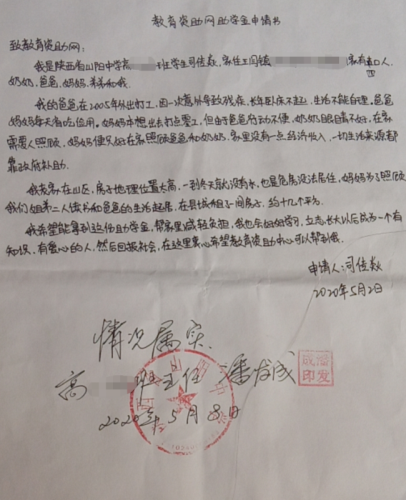 教育资助网助学金申请书
致教育资助网：
我是陕西省山阳中学高 班学生司佳焱，家住王闫镇 家有 口人，
奶奶，爸爸，妈妈，弟弟和我。
我的爸爸在2005年外出打工，因一次意外导致残疾，长年卧床不起，生活不能自理，爸爸
妈妈每天有吃药用。妈妈本想出去打点零工，但由于爸爸行动不便，奶奶眼睛不好，在家
需要人照顾，妈妈便只好在家照顾爸爸和奶奶，家里没有一点经济收入，一切生活来源都
靠政府补助。
我老家在山区，房子地理位置太高，一到冬天就没有水，也是危房没法居住，妈妈为了照顾
我们姐弟二人读书和爸爸的生活起居，在县城租了一间房子，约十几个平方。
我希望能拿到这份助学金，帮家里减轻负担，我也会好好学习，立志长大以后成为一个有
知识，有爱心的人，然后回报社会，在这里衷心希望教育资助中心可以帮到我。
申请人：司佳焱
2020年5月2日
情况属实.
高 班主任 潘发成
2020年5月8日